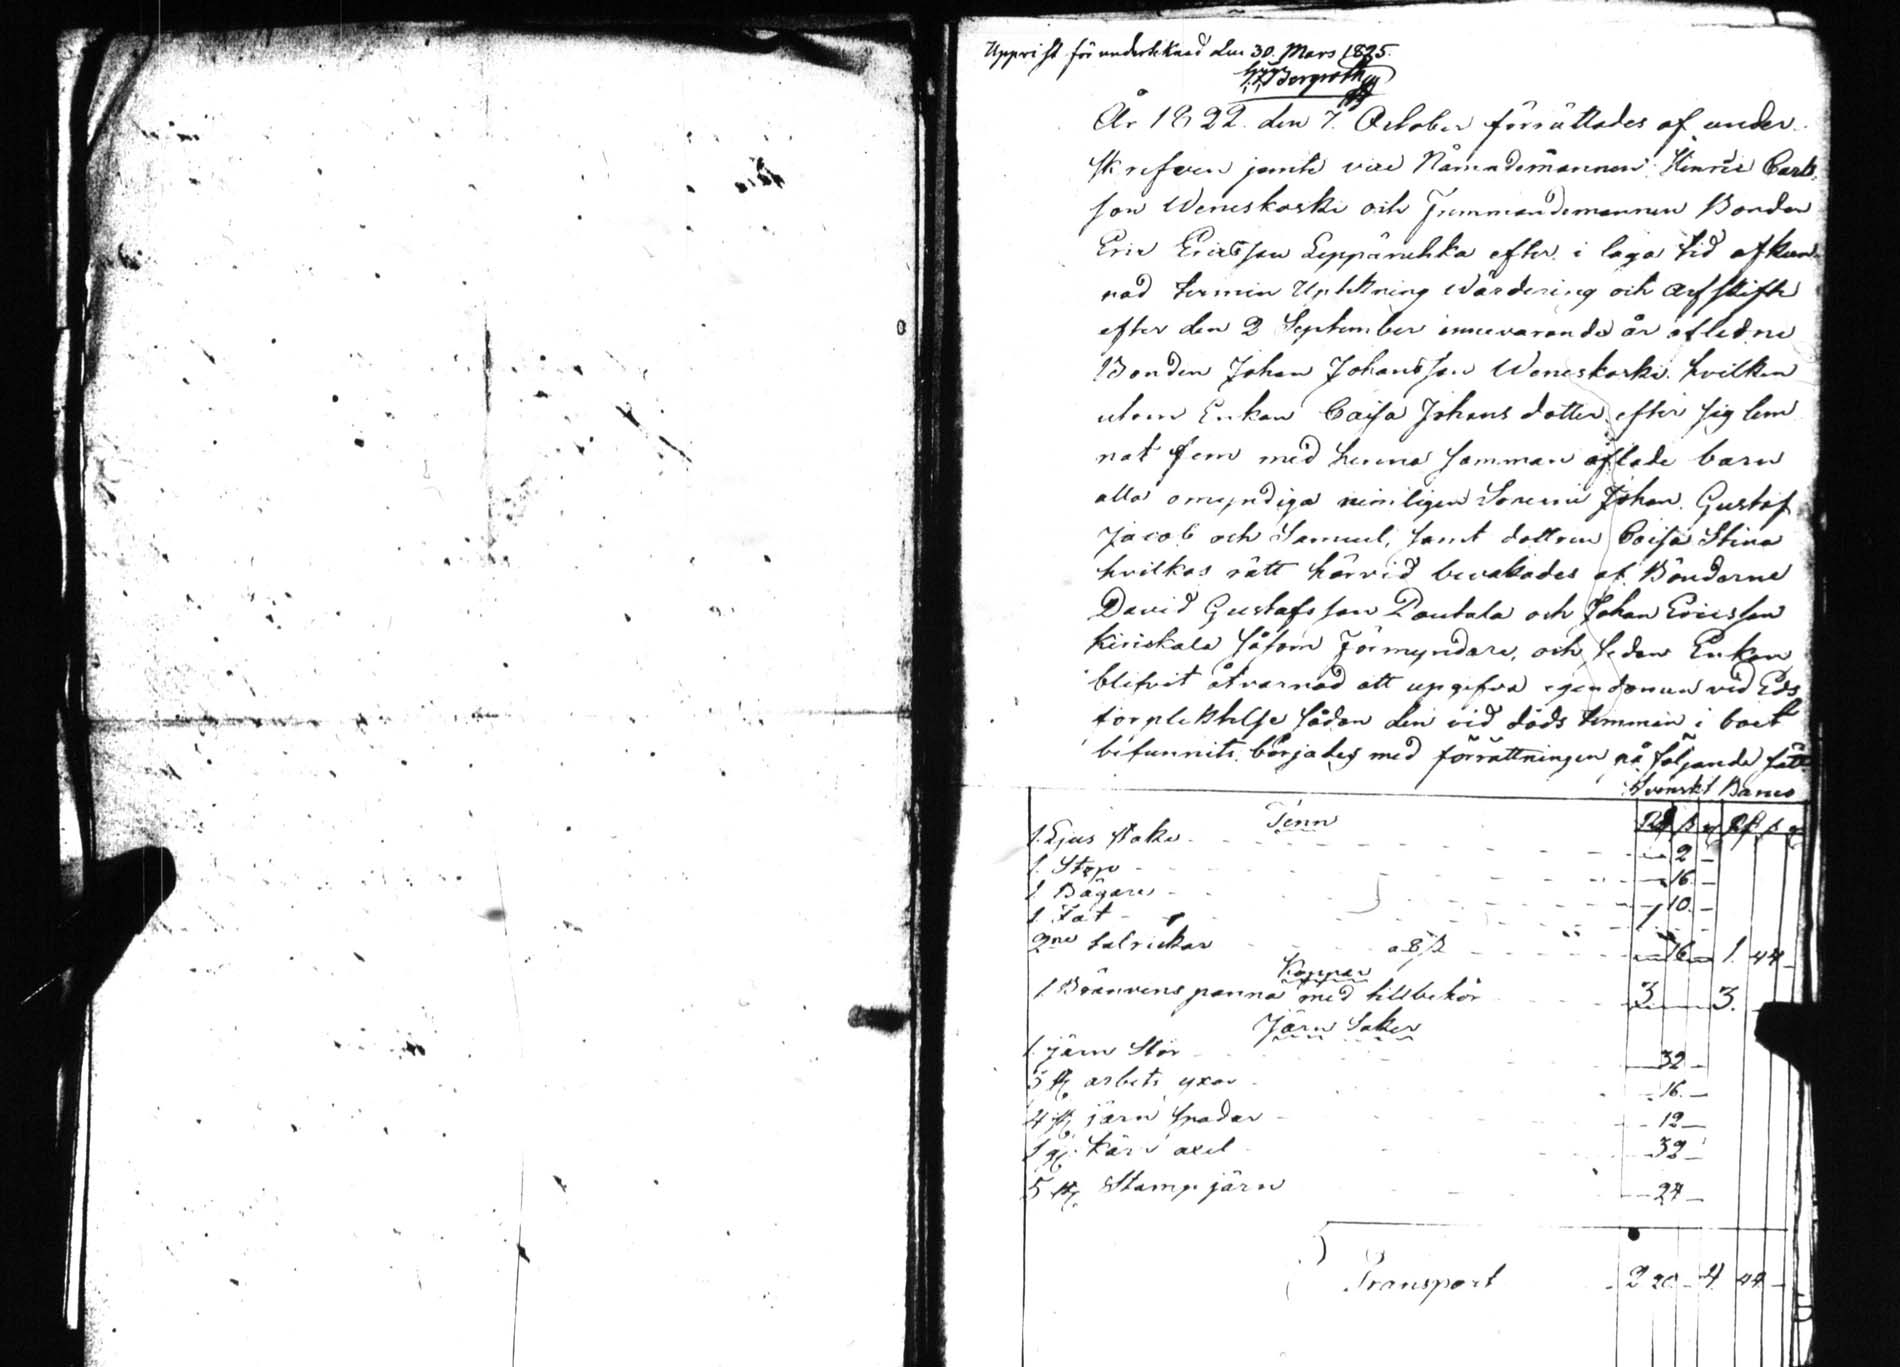 Uppvist för undertecknad den 30. Mars 1825.
Bergroth
År 1822. den 7. October förrättades af under-
skrefven jemte vice Nämndemannen Henric Carls-
son Weneskoski och Femmandemannen Bonden
Eric Ericsson Leppänehka efter i laga tid afkun-
nad termin Uptekning Wärdering och arfskifte
efter den 2 September innevarande år aflidne
Bonden Johan Johansson Weneskoski, hvilken
utom Enkan Caisa Johansdotter efter sig lem
nat fem med henne samman aflade barn
alla omyndiga nemligen Sönerne Johan, Gustaf
Jacob och Samuel, samt dottren Caisa Stina
hvilkas rätt härvid bevakades af Bönderne
David Gustafsson Pantala och Johan Ericsson
Kiriskala såsom Förmyndare, och sedan Enkan
blifvit åtvarnad att upgifva egendomen vid Eds
förpliktelse sådan den vid döds timman i boet
befunnits, börjades med förrättningen på följande sätt
Svenskt Banco
Tenn
1. Ljus stake - 2 -
1. Stop - 16. -
1 Bägare - 10. -
1. Fat - 1
2ne talrickar a 8 ß - 16 - 1. 44 -
Koppar
1. Bränvens panna med tillbehör 3 - 3. -
Järn Saker
1. järn Stör - 32 -
3 st arbets yxor - 16. -
4 st järn spadar - 12 -
1 st kärr axel - 32 -
5 st Stamp järn - 24 -
Transport - 2 20 - 4 44 -